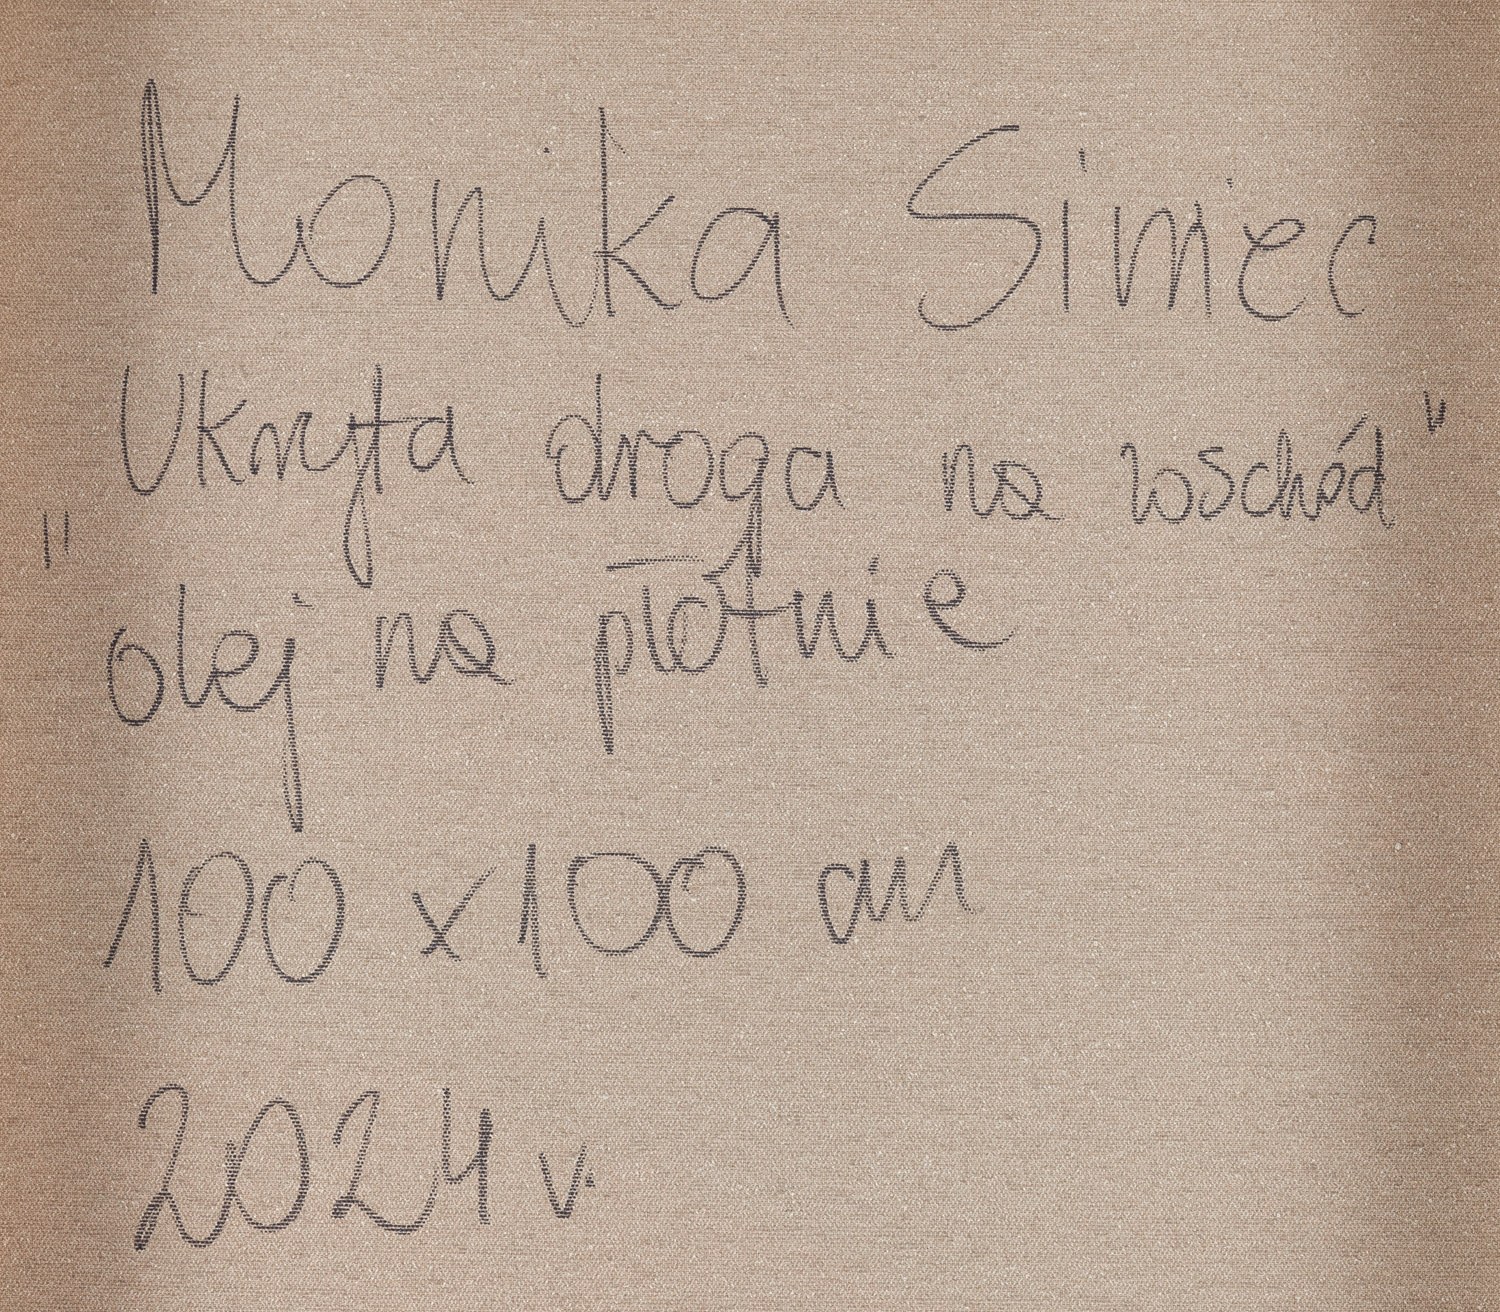 Monika Simiec
Ukryta droga na wschód"
"olej na płótnie
100 x 100 cm
2024 r.